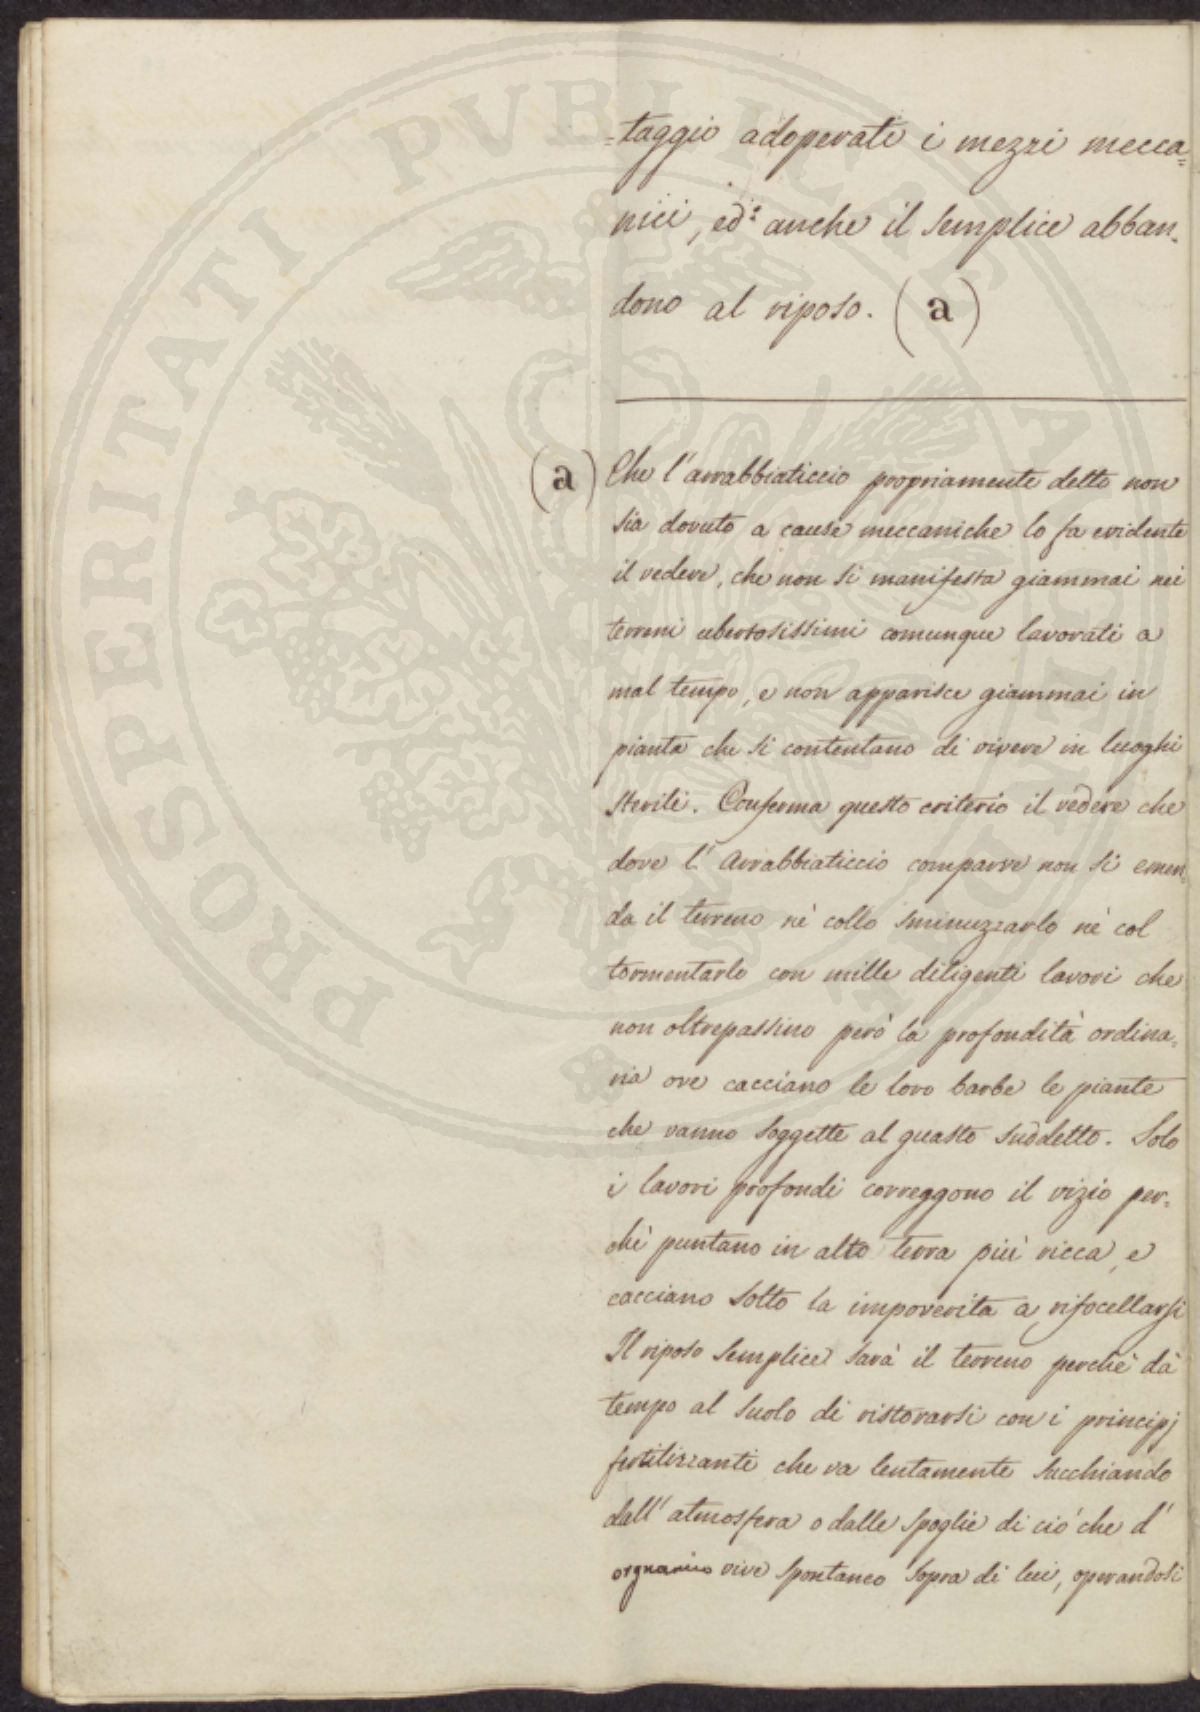 =taggio adoperati i mezzi mecca=
nici, ed anche il semplice abban=
dono al riposo. (a)
(a) Che l'arrabbiaticcio propriamente detto non
sia dovuto a cause meccaniche lo fa evidente
il vedere, che non si manifesta giammai nei
terreni ubertosissimi comunque lavorati a
mal tempo, e non apparisce giammai in
pianta che si contentano di vivere in luoghi
sterili. Conferma questo criterio il vedere che
dove l'Arrabbiaticcio comparve non si emen=
da il terreno nè collo sminuzzarlo nè col
tormentarlo con mille diligenti lavori che
non oltrepassino però la profondità ordina=
ria ove cacciano le loro barbe le piante
che vanno soggette al guasto suddetto. Solo
i lavori profondi correggono il vizio per=
chè puntano in alto terra più ricca, e
cacciano sotto la impoverita a rifocellarsi
Il riposo semplice sarà il terreno perchè dà
tempo al suolo di ristorarsi con i principj
fertilizzanti che va lentamente succhiando
dall'atmosfera o dalle spoglie di ciò che d'
orgnanico vive spontaneo sopra di lui, operandosi
PROSPERITATI PVBLICAE AVGENDAE